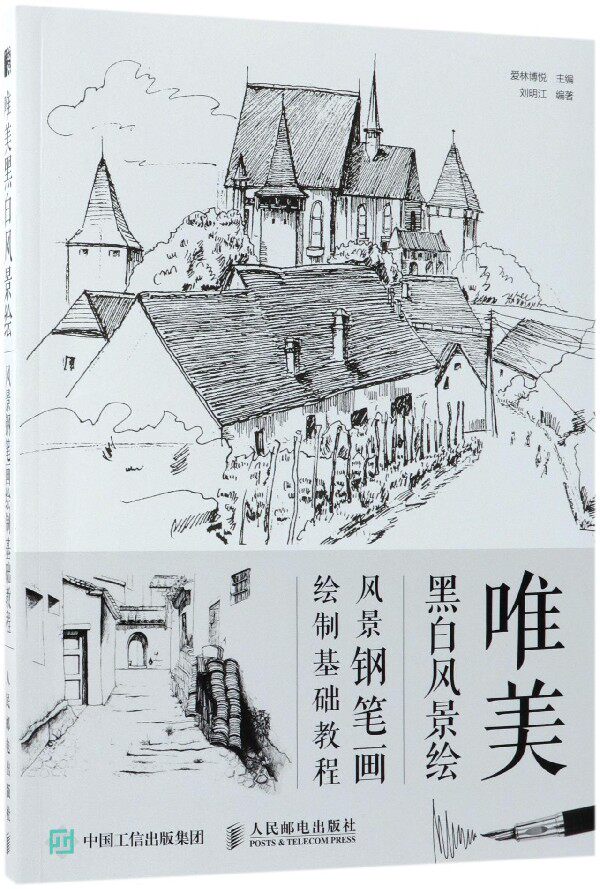 爱林博悦 主编
刘明江 编著
唯美
黑白风景绘
风景钢笔画
绘制基础教程
中国工信出版集团
人民邮电出版社
POSTS & TELECOM PRESS
唯美黑白风景绘 风景钢笔画绘制基础教程 人民邮电出版社